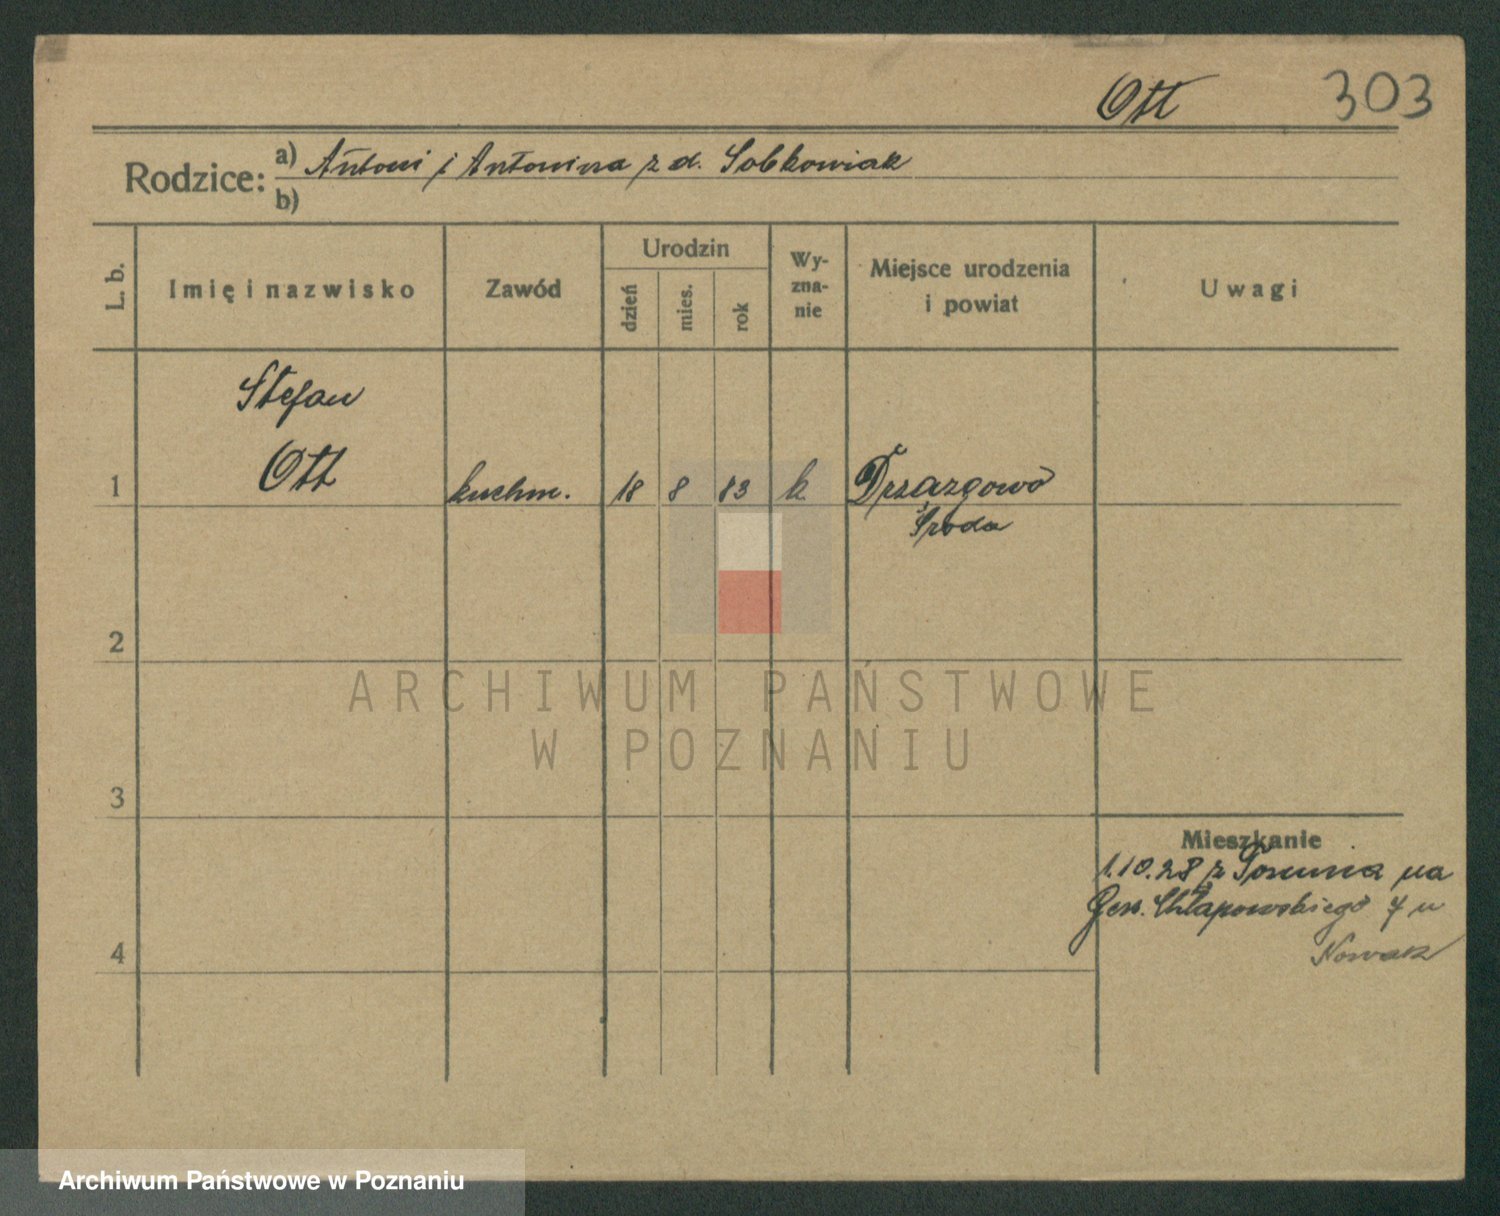 Ott 303
Rodzice: a) Antoni i Antonina z d. Sobkowiak
b)
L. b. Imię i nazwisko Zawód Urodzin dzień mies. rok Wy-zna-nie Miejsce urodzenia i powiat Uwagi
Stefan
1 Ott kuchm. 18 8 83 k Drzazgowo
Środa
2
ARCHIWUM PAŃSTWOWE
W POZNANIU
3
Mieszkanie
1.10.28 z Torunia na
Gen. Chłapowskiego 7 u
4 Nowak
Archiwum Państwowe w Poznaniu